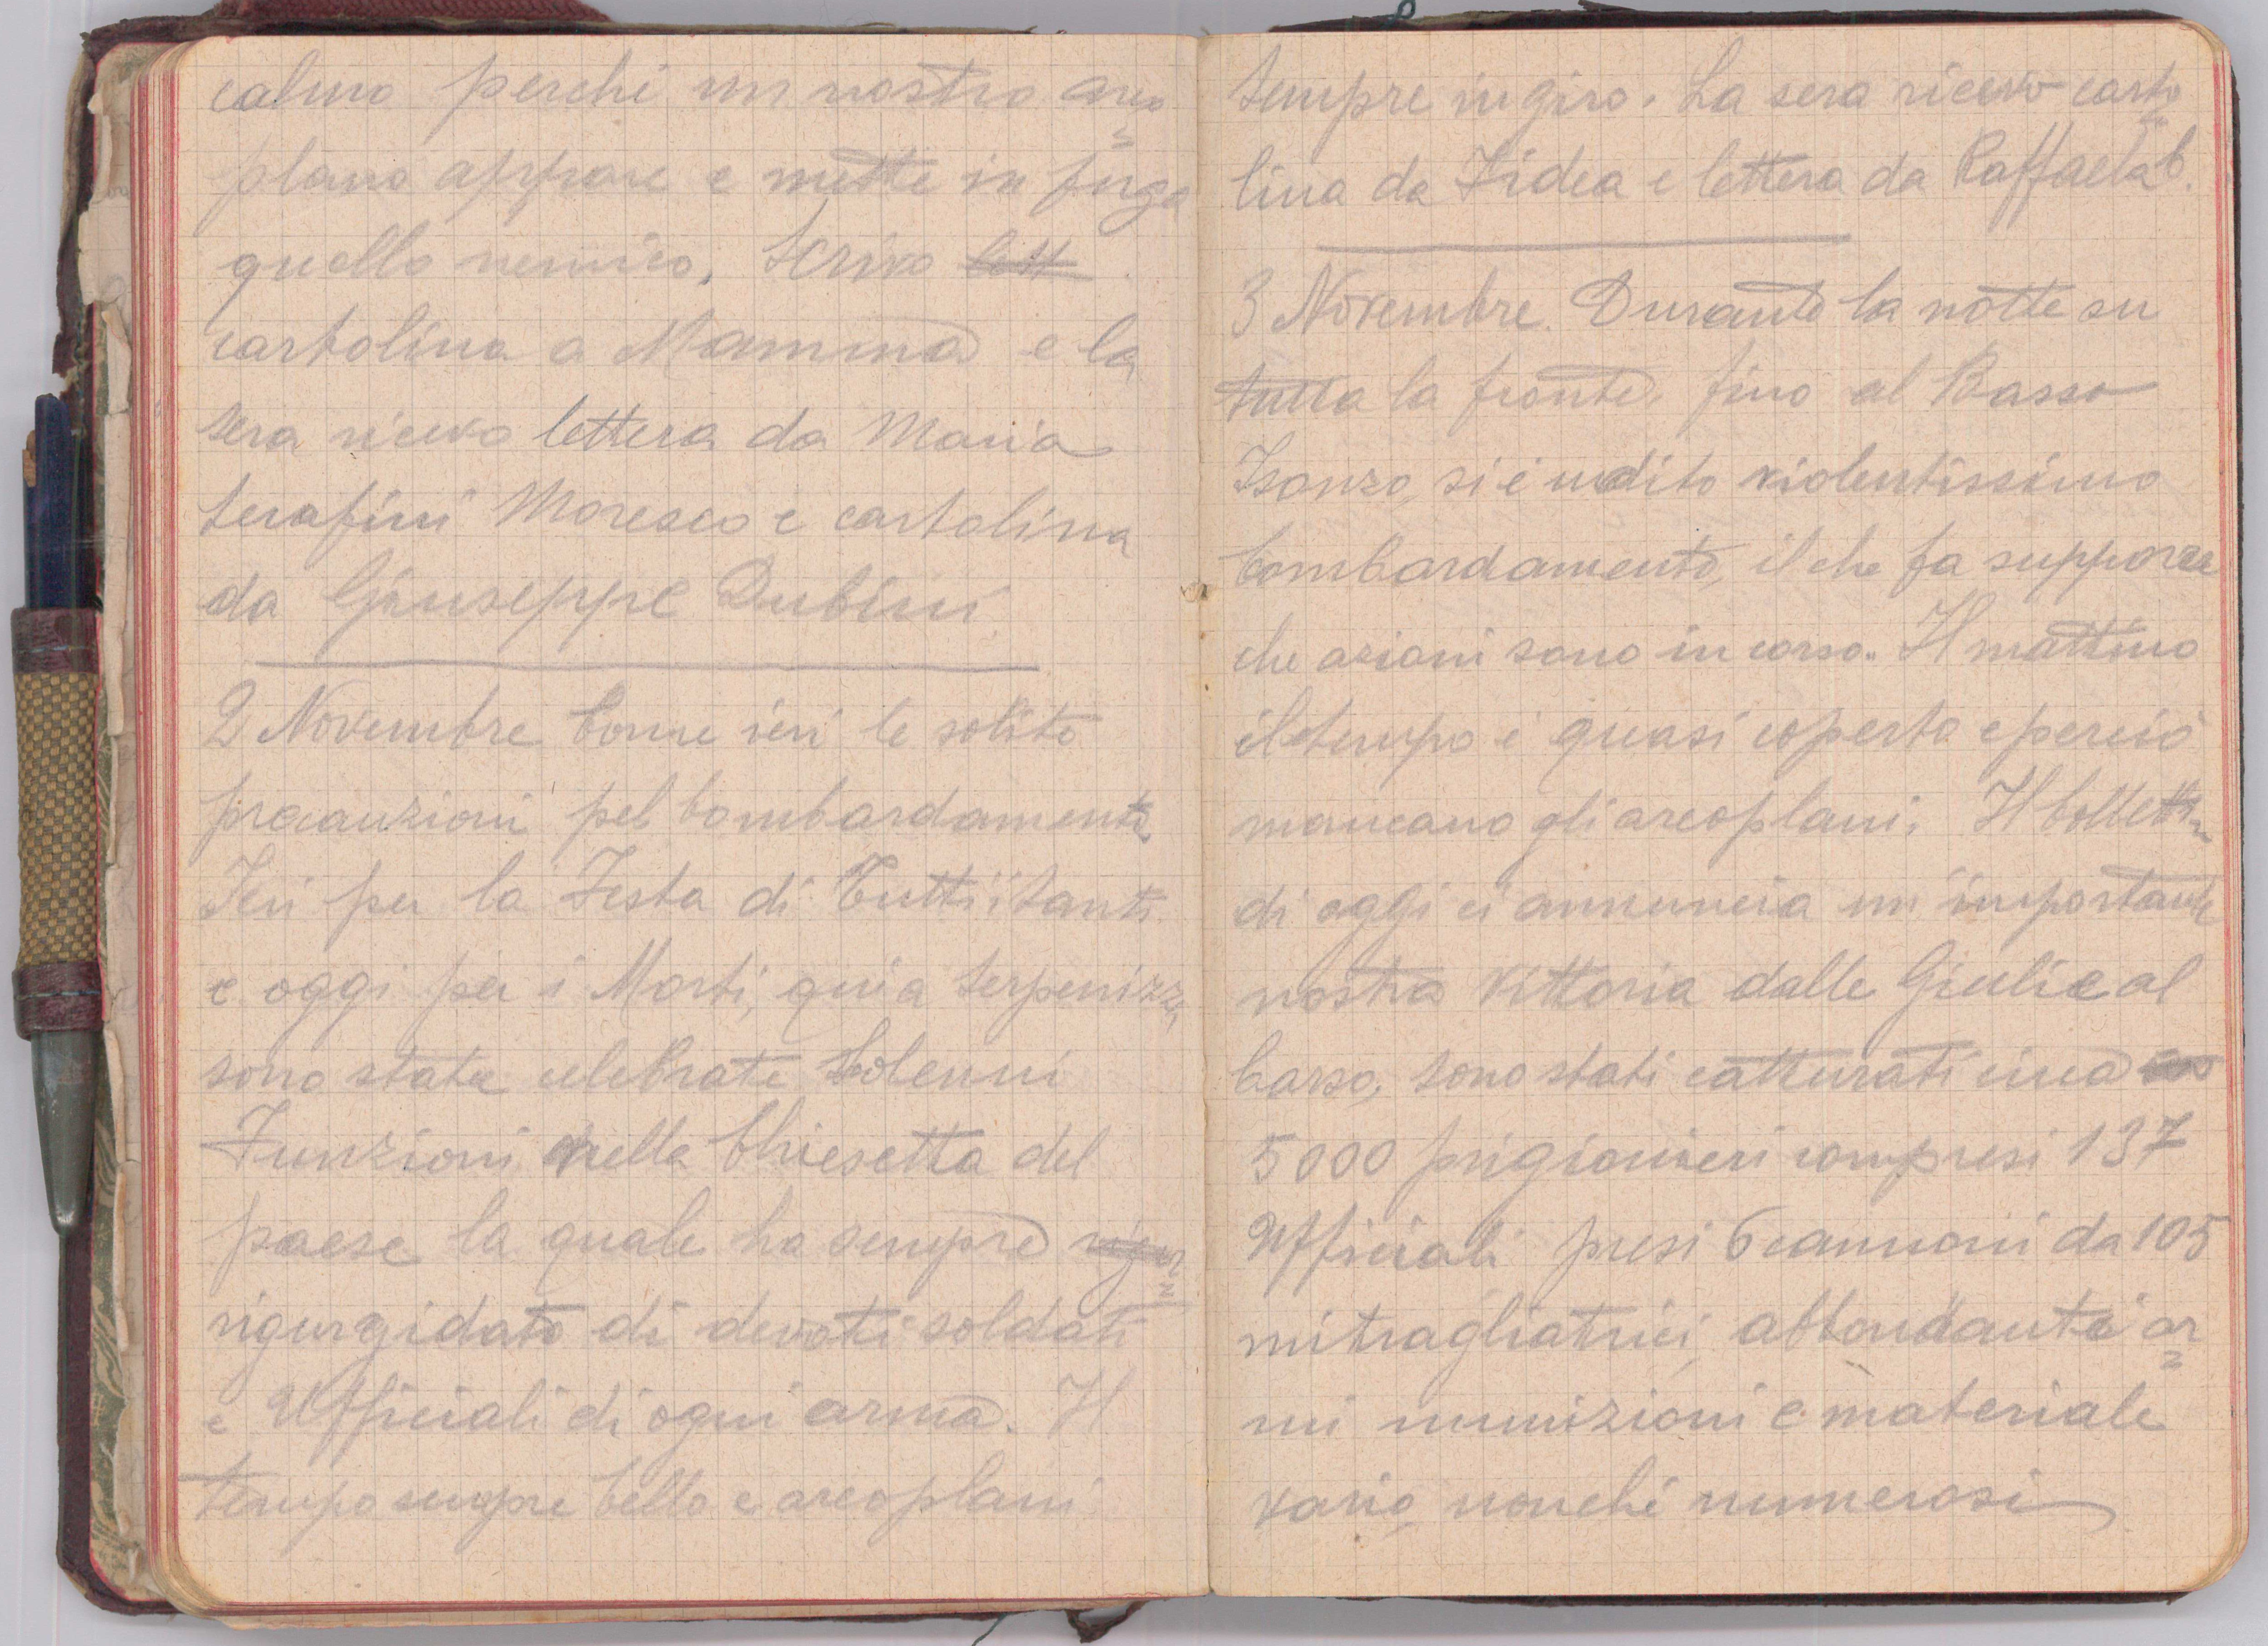 calmo perchè un nostro areo=
plano appare e mette in fuga
quello nemico. Scrivo lett
cartolina a Mamma e la
sera ricevo lettera da Maria
Serafini Moresco e cartolina
da Giuseppe Dubini
2 Novembre Come ieri le solite
precauzioni pel bombardamento
Ieri per la Festa di Tutti i Santi
e oggi per i Morti, qui a Serpenizza
sono state celebrate Solenni
Funzioni nella Chiesetta del
paese la quale ha sempre rigur=
rigurgidato di devoti soldati
e Ufficiali di ogni arma. Il
tempo sempre bello e areoplani
sempre in giro. La sera ricevo carto=
lina da Fidea e lettera da Raffaela C.
3 Novembre. Durante la notte su
tutta la fronte, fino al Basso
Isonzo, si è udito violentissimo
bombardamento, il che fa supporre
che azioni sono in corso. Il mattino
il tempo è quasi coperto e perciò
mancano gli areoplani. Il bollettin
di oggi ci annuncia un'importante
nostra vittoria dalle Giulie al
Carso, sono stati catturati circa
5000 prigionieri compresi 137
Ufficiali presi 6 cannoni da 105
mitragliatrici, abbondanti ar=
mi munizioni e materiale
vario, nonchè numerosi